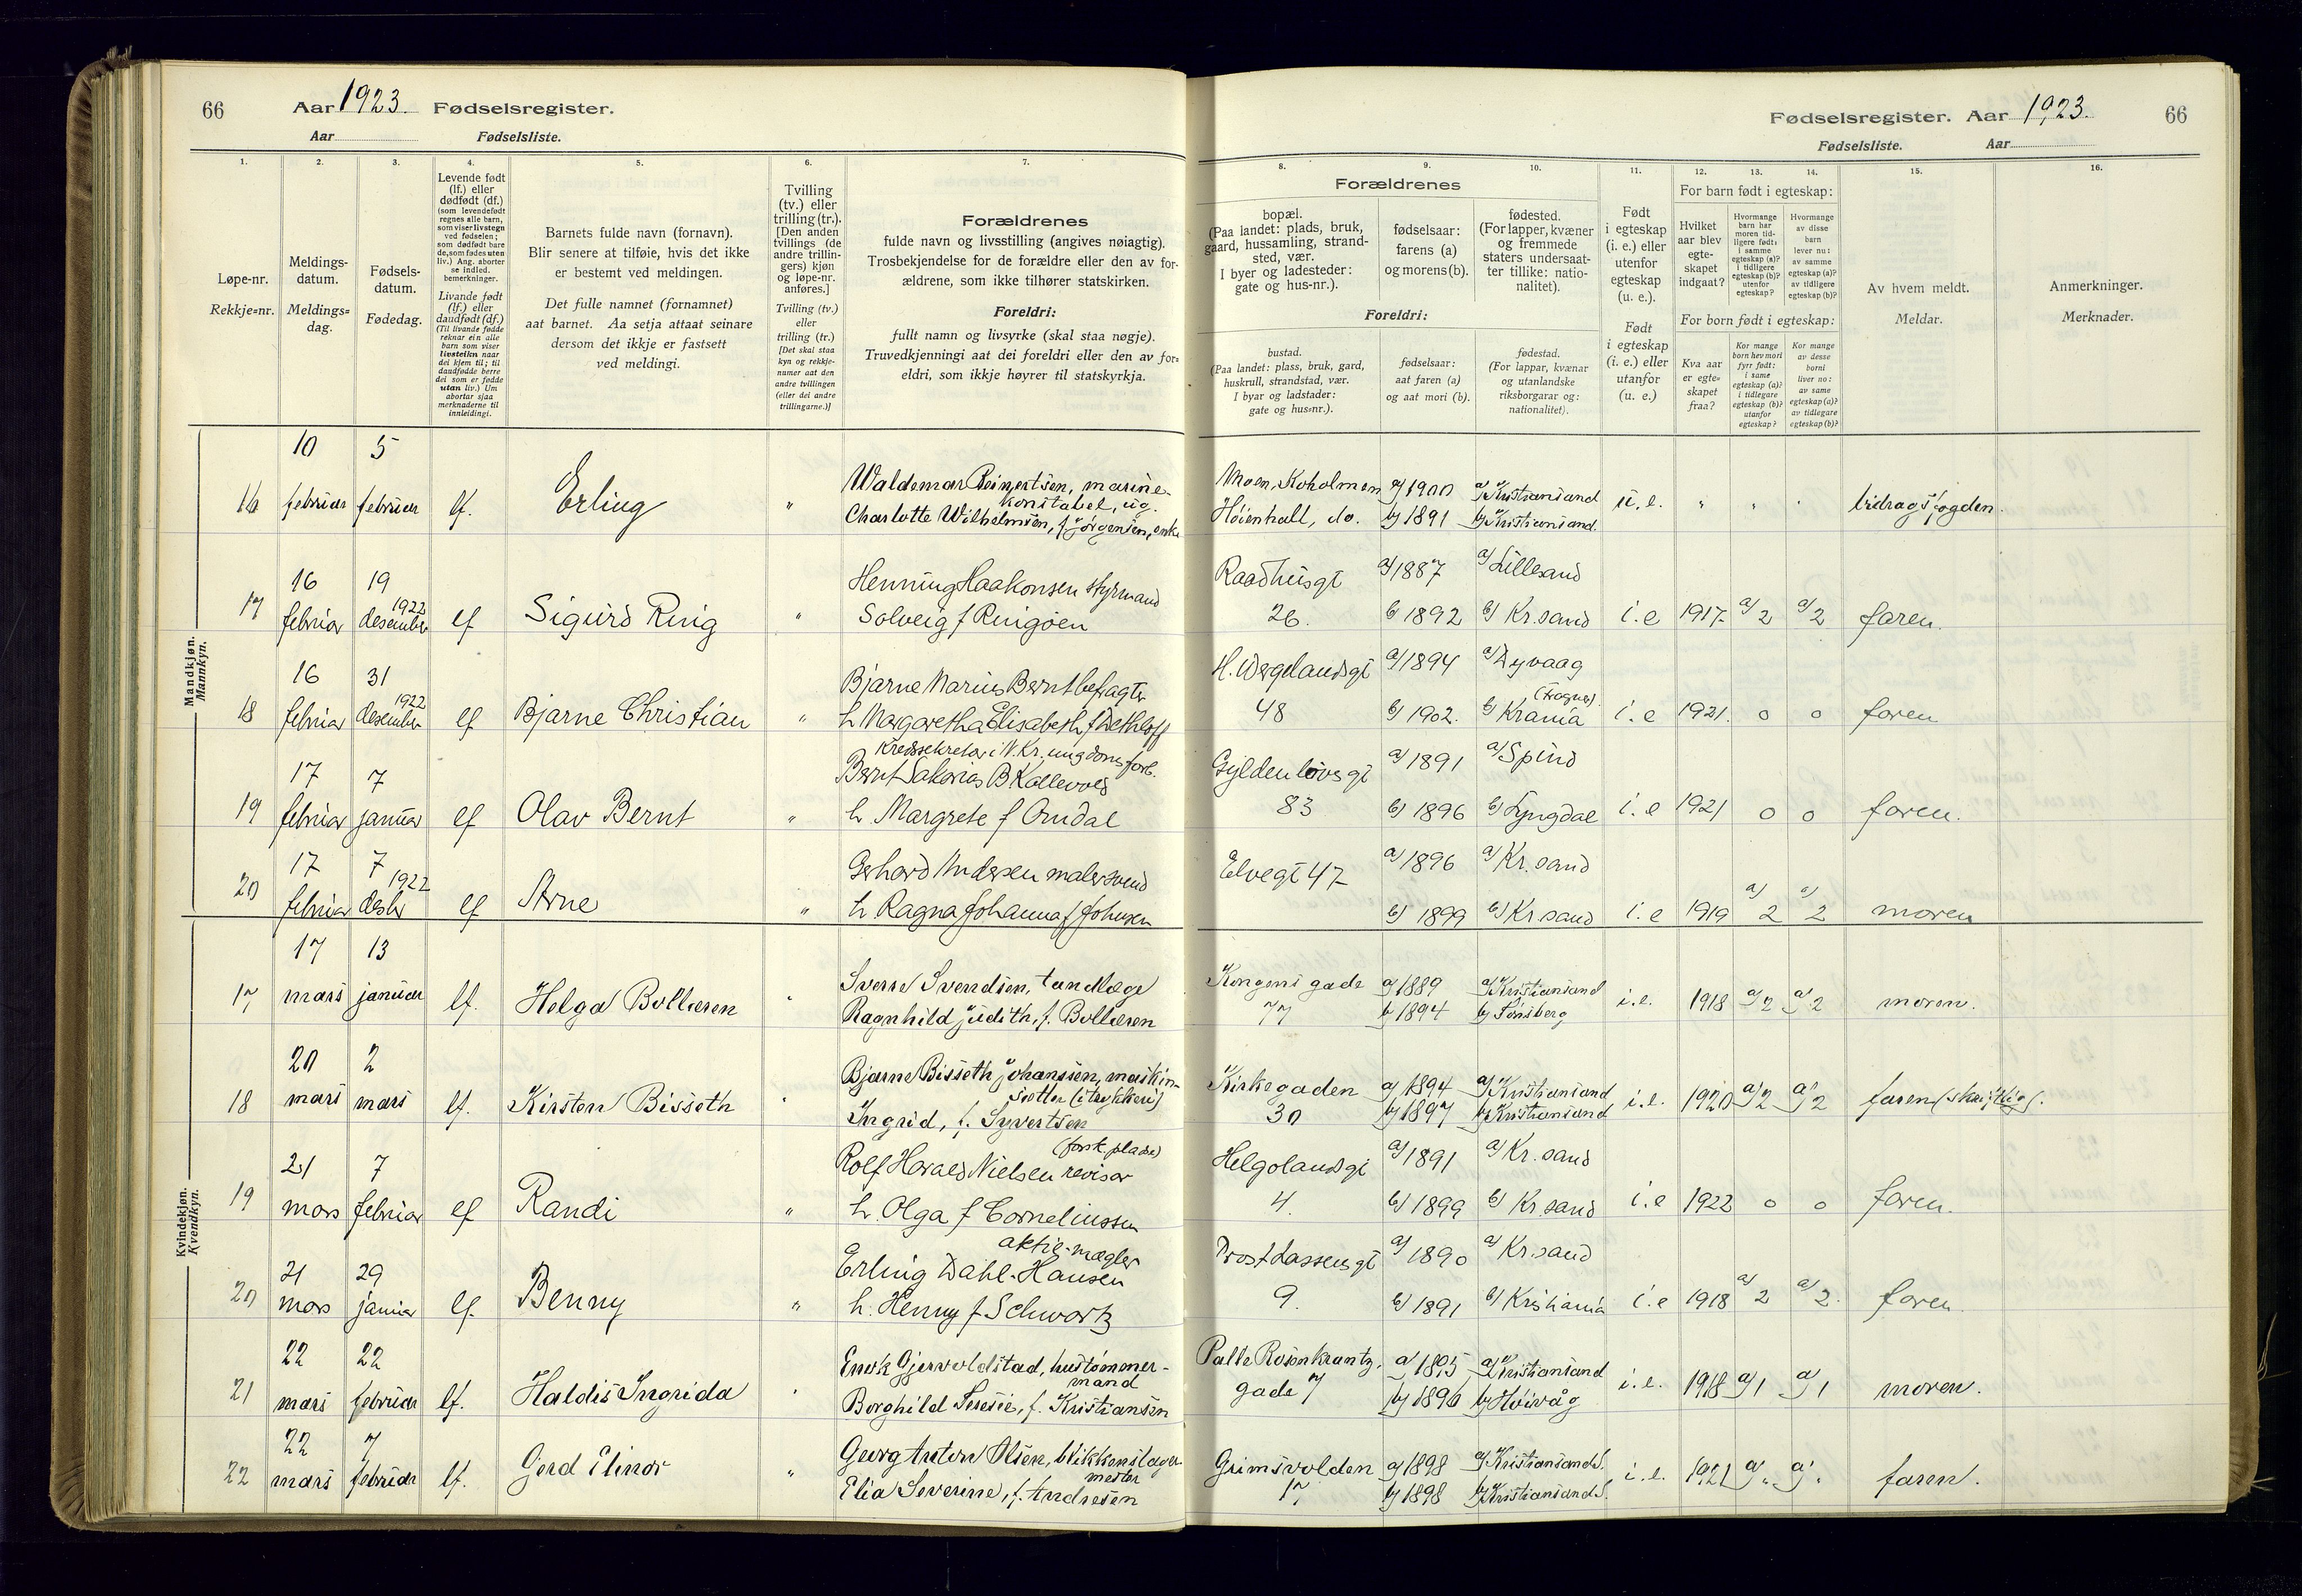 66 Aar 1923. Fødselsregister.
Aar Fødselsliste.
1. 2. 3. 4. 5. 6. 7.
Løpe-nr.
Rekkje-nr.
Meldings-
datum.
Meldings-
dag.
Fødsels-
datum.
Fødedag.
Levende født
(lf.) eller
dødfødt (df.)
(som levendefødt
regnes alle barn,
som viser livstegn
ved fødselen;
som dødfødt bare
de, som fødes uten
liv.) Ang. aborter
se indled.
bemerkninger.
Livande født
(lf.) eller
daudfødt (df.)
(Til livande fødde
reknar ein alle
barn som viser
livsteikn naar
dei kjem til; til
daudfødde berre
dei som er fødde
utan liv.) Um
abortar sjaa
merknaderne til
innleidingi.
Barnets fulde navn (fornavn).
Blir senere at tilføie, hvis det ikke
er bestemt ved meldingen.
Det fulle namnet (fornamnet)
aat barnet. Aa setja attaat seinare
dersom det ikkje er fastsett
ved meldingi.
Tvilling
(tv.) eller
trilling (tr.).
[Den anden
tvillings (de
andre trillin-
gers) kjøn
og løpe-nr.
anføres.]
Tvilling (tv.)
eller
trilling (tr.)
[Det skal staa
kyn og rekkje-
numer aat den
andre tvillingen
(eller dei andre
trillingarne.)]
Forældrenes
fulde navn og livsstilling (angives nøiagtig).
Trosbekjendelse for de forældre eller den av for-
ældrene, som ikke tilhører statskirken.
Foreldri:
fullt namn og livsyrke (skal staa nøgje).
Truvedkjenningi aat dei foreldri eller den av for-
eldri, som ikkje høyrer til statskyrkja.
Mandkjøn.
Mannkyn.
10 5
16 februar februar lf. Erling "
Waldemar Reinertsen, marine-
konstabel, ug.
Charlotte Wilhelmsen, f. Jørgensen, enke
16 19
1922
17 februar desember lf Sigurd Ring "
Henning Haakonsen styrmand
Solveig f Ringøen
16 31
1922
18 februar desember lf Bjarne Christian "
Bjarne Marius Berntsen
h Margaretha Elisabeth f Dethloff
17 7
19 februar januar lf Olav Bernt "
Kredssekretær i V. Kr. ungdomsforb.
Bernt Sakarias B Kollevold
h. Margrete f Omdal
17 7
1922
20 februar desbr lf Arne "
Gerhard Andersen malersvend
h. Ragna Johanna f Johnsen
Kvindekjøn.
Kvendkyn.
17 13
17 mars januar lf. Helga Bollæren "
Sverre Svendsen, tandlæge
Ragnhild Judith, f. Bollæren
20 2
18 mars mars lf. Kirsten Bisseth "
Bjarne Bisseth Johanssen, maskin-
sætter (i trykkeri)
Ingrid, f. Syvertsen
21 7
19 mars februar lf Randi "
Rolf Harald Nielsen revisor
h. Olga f Corneliussen
21 29
20 mars januar lf. Benny "
aktie-mægler
Erling Dahl-Hansen
h. Henny f Schwartz
22 22
21 mars februar lf. Haldis Ingrida "
Enok Gjervoldstad, hustømmer-
mand
Borghild Teresie, f. Kristiansen
22 7
22 mars februar lf. Gerd Elinor "
Georg Anton Olsen, blikkenslager-
mester
Elia Severine, f. Andresen
Fødselsregister. Aar 1923. 66
Fødselsliste. Aar
8. 9. 10. 11. 12. 13. 14. 15. 16.
Forældrenes
bopæl.
(Paa landet: plads, bruk,
gaard, hussamling, strand-
sted, vær.
I byer og ladesteder:
gate og hus-nr.).
fødselsaar:
farens (a)
og morens (b).
fødested.
(For lapper, kvæner
og fremmede
staters undersaat-
ter tillike: natio-
nalitet).
Foreldri:
bustad.
(Paa landet: plass, bruk, gard,
huskrull, strandstad, vær.
I byar og ladstader:
gate og hus-nr.).
fødselsaar:
aat faren (a)
og aat mori (b).
fødestad.
(For lappar, kvænar
og utanlandske
riksborgarar og:
nationalitet).
Født
i egteskap
(i. e.) eller
utenfor
egteskap
(u. e.).
Født
i egteskap
(i. e.) eller
utanfor
(u. e.)
For barn født i egteskap:
Hvilket
aar blev
egte-
skapet
indgaat?
Hvormange
barn har
moren tid-
ligere født:
i samme
egteskap (a)?
i tidligere
egteskap (b)?
utenfor
egteskap?
Hvormange
av disse
barn
lever nu:
av samme
egteskap (a)?
av tidligere
egteskap (b)?
For born født i egteskap:
Kva aar
er egte-
skapet
fraa?
Kor mange
born hev mori
fyrr født:
i same
egteskap (a)?
i tidlegare
egteskap (b)?
utanfor
egteskap?
Kor mange
av desse
borni
liver no:
av same
egteskap (a)?
av tidlegare
egteskap (b)?
Av hvem meldt.
Meldar.
Anmerkninger.
Merknader.
Moen, Koholmen a) 1900 a) Kristiansand
Høienhall, do. b) 1891 b) Kristiansand u. e. " " " bidragsfogden.
Raadhusgt a) 1887 a) Lillesand
26. b 1892 b) Kr.sand i. e 1917. a) 2 a) 2 faren.
H. Wergelandsgt a) 1894 a) Dyvaag
48 b) 1902. b) Krania i. e 1921. o o faren
Gyldenløvsgt a) 1891 a) Spind
83 b) 1896 b) Lyngdal i. e 1921 o o faren.
Elvegt 47 a) 1896 a) Kr.sand
b) 1899 b) Kr.sand i. e 1919 a) 2 a) 2 moren
Kongens gade a) 1889 a) Kristiansand
77 b) 1894 b) Tønsberg i. e. 1918 a) 2 a) 2 moren.
Kirkegaden a) 1894 a) Kristiansand
30 b) 1897 b) Kristiansand i. e. 1920 a) 2 a) 2 faren (skriftlig).
Helgolandsgt a) 1891 a) Kr.sand
4. b) 1899 b) Kr.sand i. e 1922 o o faren.
Prost Lassensgt a) 1890 a) Kr.sand
9. b) 1891 b) Kristiania i. e 1918 a) 2 a) 2. faren.
Palle Rosenkrantz. a) 1895 a) Kristiansand
gade 7 b) 1896 b) Høivåg i. e. 1918 a) 1 a) 1 moren.
Grimsvolden a) 1898 a) Kristiansand S.
17 b) 1898 b) Kristiansand S. i. e. 1921 a) " a) " faren.